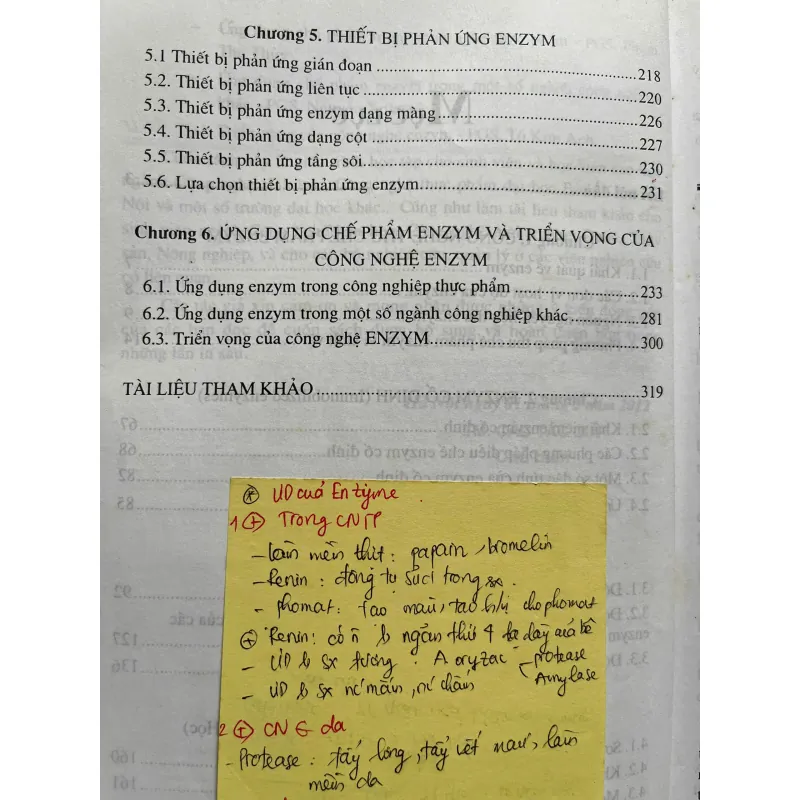 Chương 5. THIẾT BỊ PHẢN ỨNG ENZYM
5.1 Thiết bị phản ứng gián đoạn 218
5.2. Thiết bị phản ứng liên tục 220
5.3. Thiết bị phản ứng enzym dạng màng 226
5.4. Thiết bị phản ứng dạng cột 227
5.5. Thiết bị phản ứng tầng sôi 230
5.6. Lựa chọn thiết bị phản ứng enzym 231
Chương 6. ỨNG DỤNG CHẾ PHẨM ENZYM VÀ TRIỂN VỌNG CỦA
CÔNG NGHỆ ENZYM
6.1. Ứng dụng enzym trong công nghiệp thực phẩm 233
6.2. Ứng dụng enzym trong một số ngành công nghiệp khác 281
6.3. Triển vọng của công nghệ ENZYM 300
TÀI LIỆU THAM KHẢO 319
UD của Enzyme
1 + Trong CNTP
- làm mền thịt : papain, bromelin
- Renin : đông tụ sữa trong sx.
- phomat : tạo màu, tạo cho phomat
+ Renin : có ngăn thứ 4 dạ dày bê
- UD sx tương : A oryzae - protease
Amylase
- UD sx nc mắm, nc chấm
2 + CN da
- Protease : tẩy lông, tẩy vết máu, làm
mền da